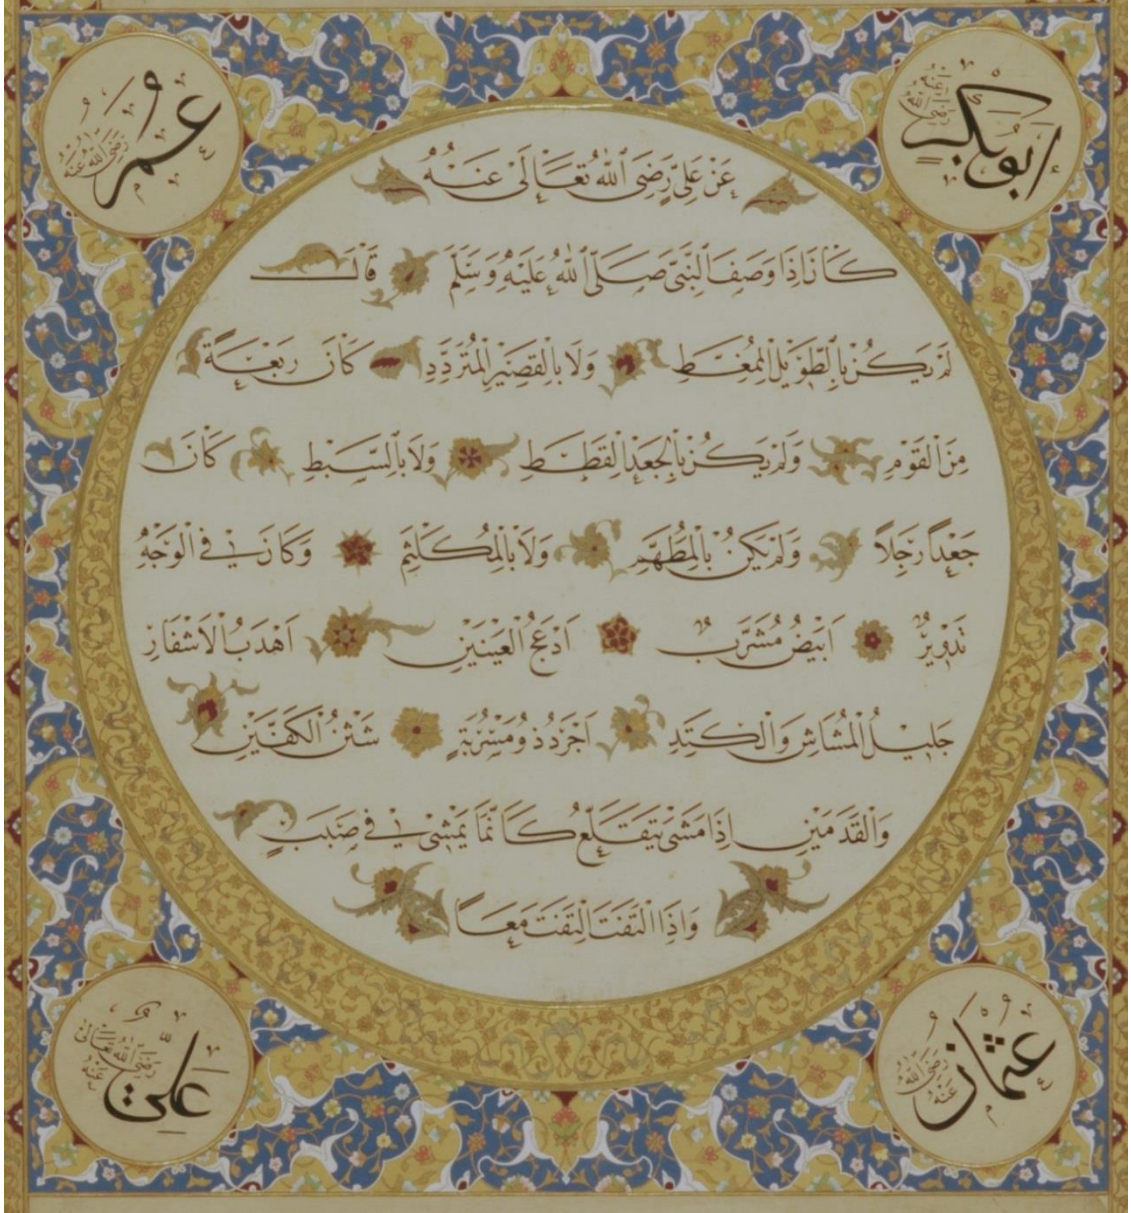 ابو بكر رضي الله عنه
عمر رضي الله عنه
عَنْ عَلِيٍّ رَضِيَ اللهُ تَعَالَى عَنْهُ
كَانَ اِذَا وَصَفَ النَّبِيَّ صَلَّى اللهُ عَلَيْهِ وَسَلَّمَ قَالَ
لَمْ يَكُنْ بِالطَّوِيلِ الْمُمَغَّطِ وَلَا بِالْقَصِيرِ الْمُتَرَدِّدِ كَانَ رَبْعَةً
مِنَ الْقَوْمِ وَلَمْ يَكُنْ بِالْجَعْدِ الْقَطَطِ وَلَا بِالسَّبِطِ كَانَ
جَعْداً رَجِلاً وَلَمْ يَكُنْ بِالْمُطَهَّمِ وَلَا بِالْمُكَلْثَمِ وَكَانَ فِي الْوَجْهِ
تَدْوِيرٌ اَبْيَضُ مُشْرَبٌ اَدْعَجُ الْعَيْنَيْنِ اَهْدَبُ الْاَشْفَارِ
جَلِيلُ الْمُشَاشِ وَالْكَتَدِ اَجْرَدُ ذُو مَسْرُبَةٍ شَثْنُ الْكَفَّيْنِ
وَالْقَدَمَيْنِ اِذَا مَشَى يَتَقَلَّعُ كَاَنَّمَا يَمْشِي فِي صَبَبٍ
وَاِذَا الْتَفَتَ الْتَفَتَ مَعاً
عثمان رضي الله عنه
علي رضي الله تعالى عنه